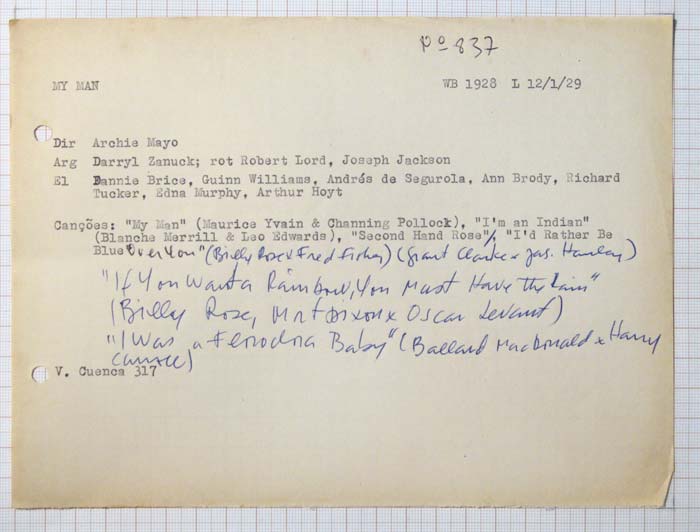 Pº 837
MY MAN WB 1928 L 12/1/29
Dir Archie Mayo
Arg Darryl Zanuck; rot Robert Lord, Joseph Jackson
El Fannie Brice, Guinn Williams, Andrés de Segurola, Ann Brody, Richard
Tucker, Edna Murphy, Arthur Hoyt
Canções: "My Man" (Maurice Yvain & Channing Pollock), "I'm an Indian"
(Blanche Merrill & Leo Edwards), "Second Hand Rose"/, "I'd Rather Be
Blue Over You" (Billy Rose x Fred Fisher) (Grant Clarke x Jas. Hanley)
"If You Want a Rainbow, You Must Have The Rain"
(Billy Rose, Mort Dixon x Oscar Levant)
"I Was a Florodora Baby" (Ballard MacDonald x Harry
Carroll)
V. Cuenca 317